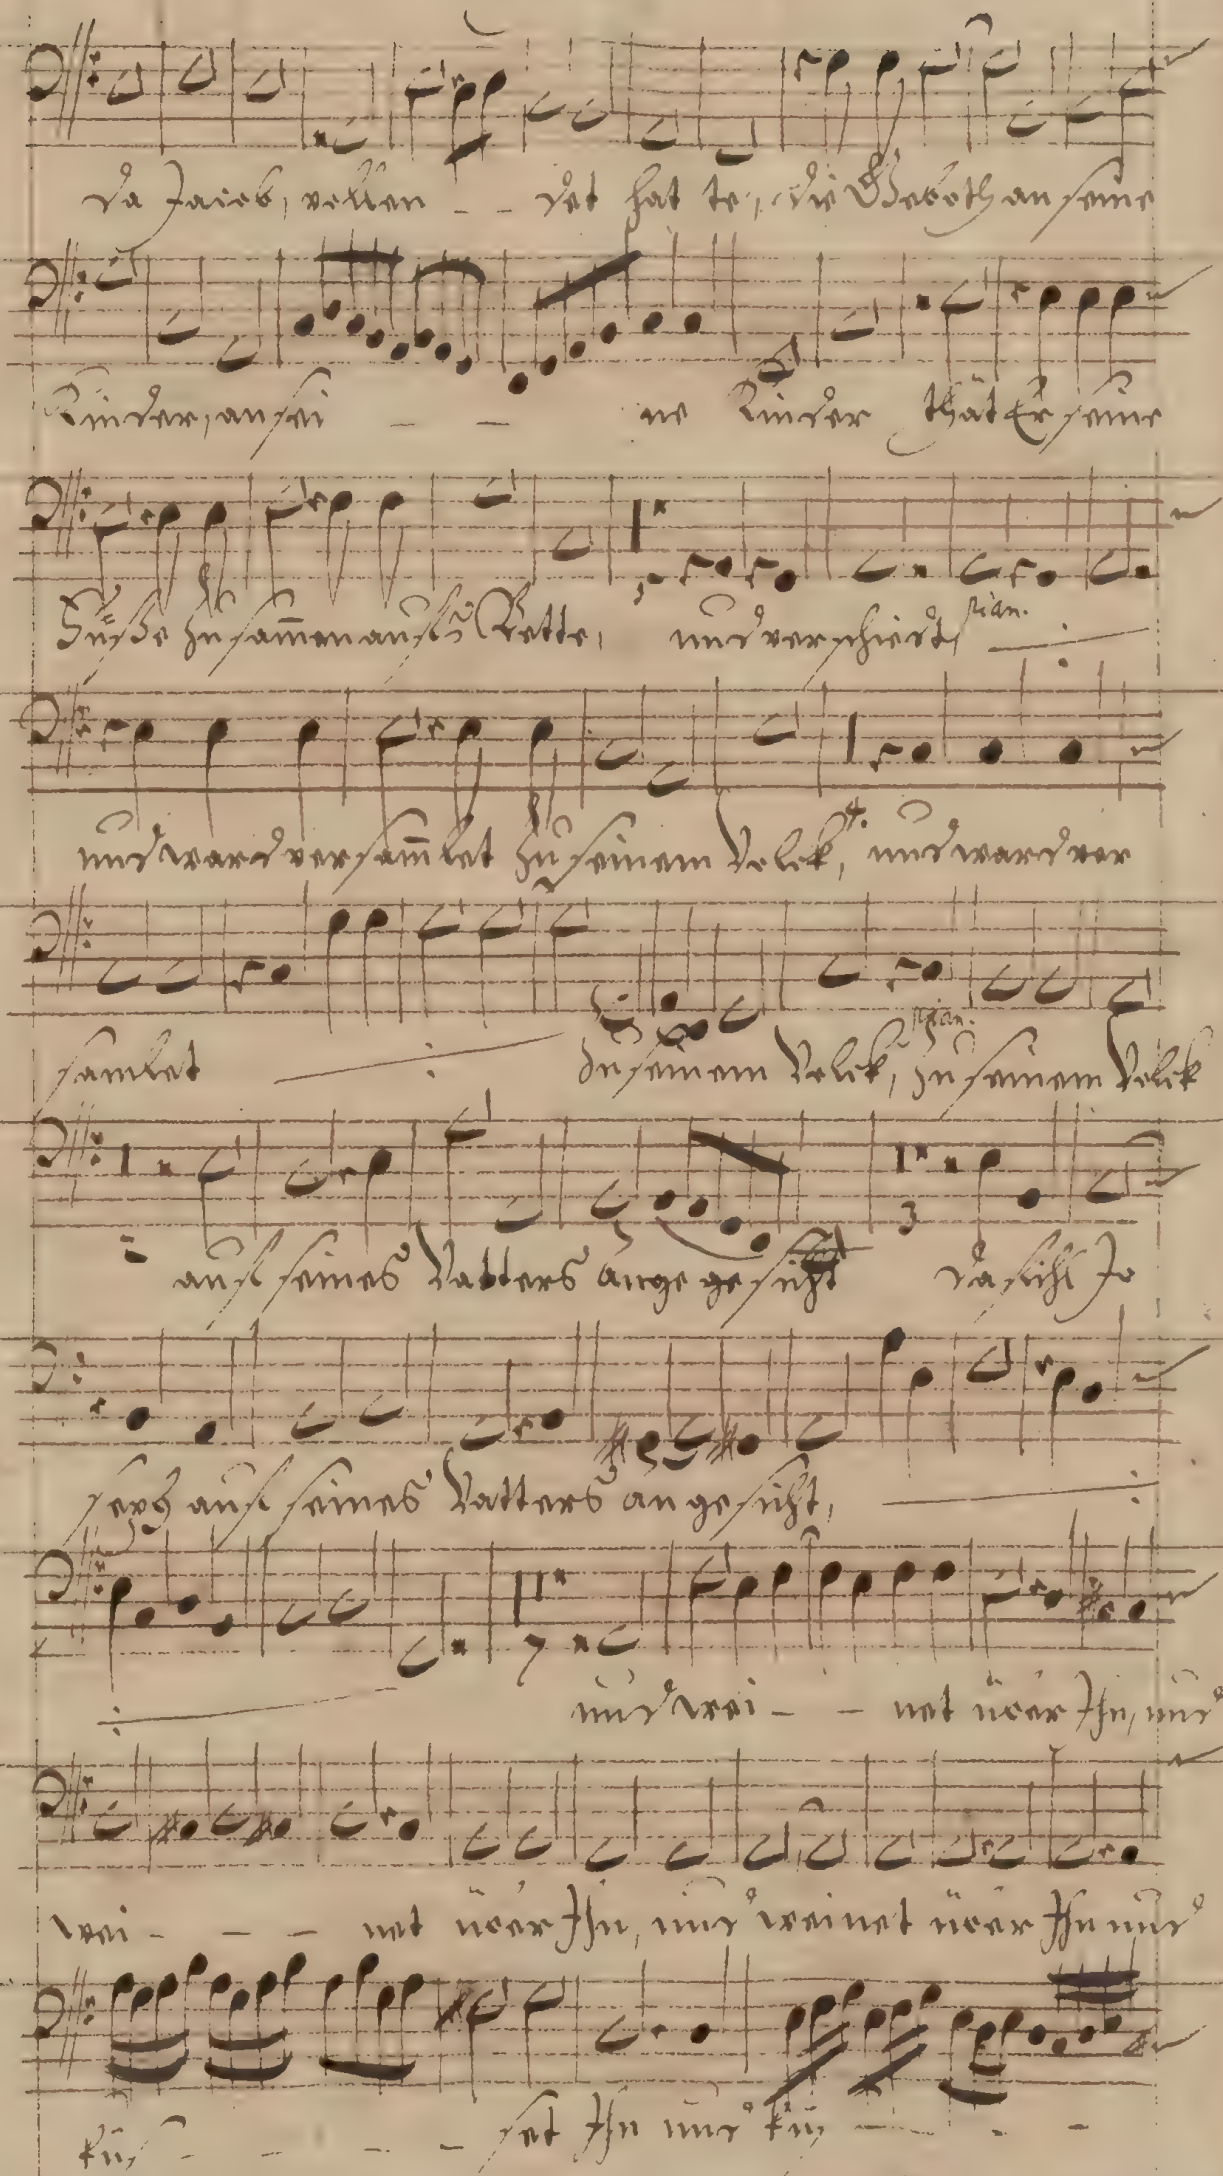 da Jacob, vollen - - det hat te, die Geboth an seine
Kinder, an sei - - ne Kinder thät Er seine
Füsse zu sam̄en aufs Bette, und verschiedt, pian.
und ward versam̄let zu seinem Volck, und ward ver
samlet zu seinem Volck, pian. zu seinem Volck
3
auf seines Vatters ange ge sicht da fihl Jo
seph auf seines Vatters an ge sicht,
7
und wei - - net über Ihn, und
wei - - - net über Ihn, und weinet über Ihn und
küs - - - - set Ihn und küs - - -